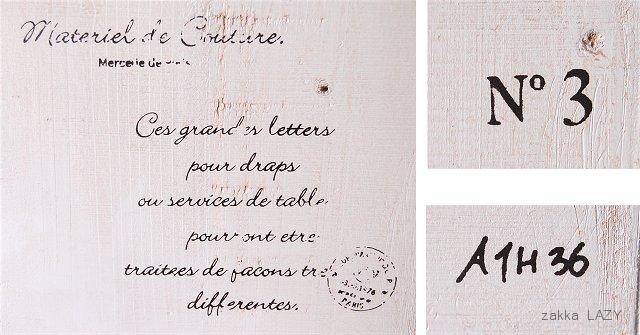 Materiel de Couture.
Mercerie de
Ces grandes letters
pour draps
ou services de table
pourront etre
traitees de façons
differentes.
PARIS
N° 3
A1H36
zakka LAZY